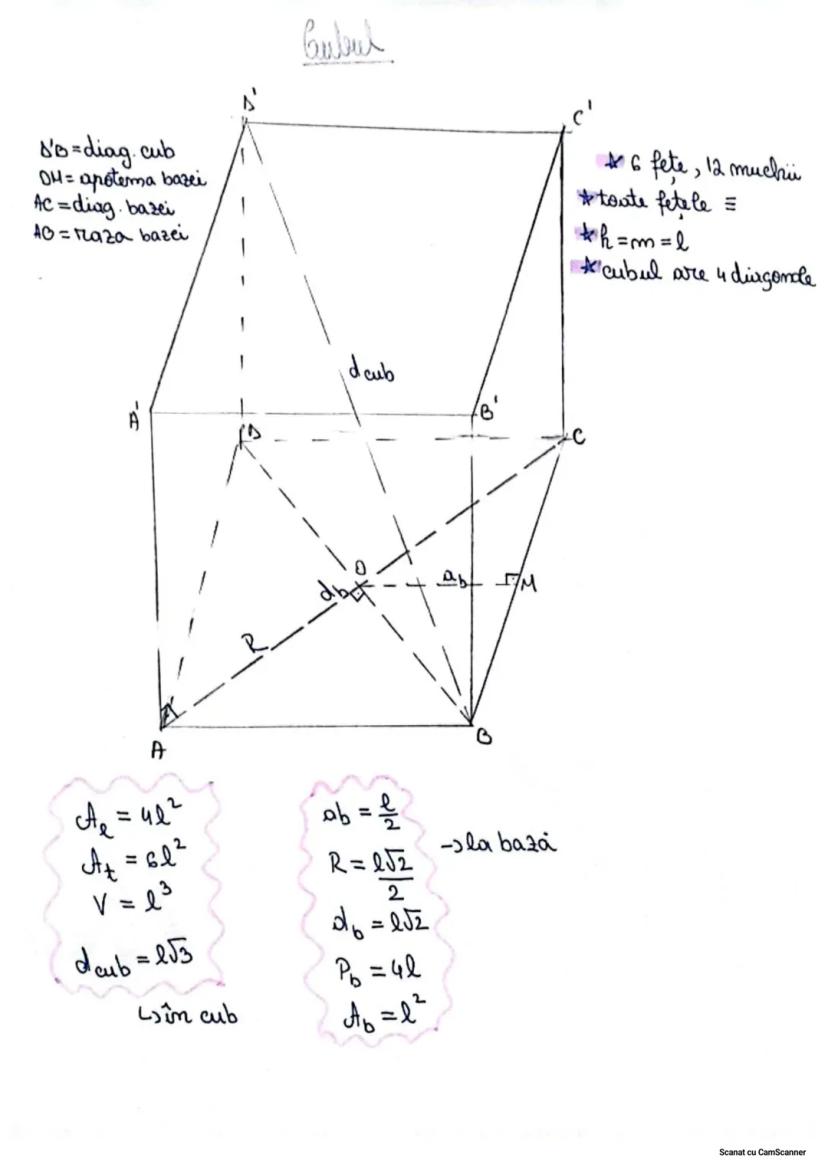 Cubul
D'
C'
D'B=diag. cub
OM= apotema bazei
AC=diag. bazei
AO=raza bazei
* 6 fețe, 12 muchii
* toate fețele ≡
* h=m=l
* cubul are 4 diagonale
d cub
A'
B'
D
C
O
ab
M
db
R
A
B
Aℓ = 4l²
At = 6l²
V = l³
d cub = l√3
↳în cub
ab = l/2
R = l√2/2
→la bază
db = l√2
Pb = 4l
Ab = l²
Scanat cu CamScanner